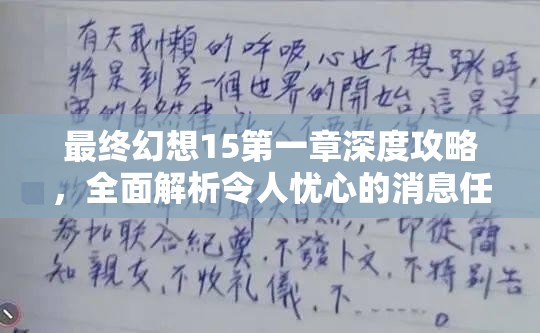 有天我懶的呼吸,心也不想跳時,
將是到另一個世界的開始,這是宇
宙的自然律
最终幻想15第一章深度攻略
，全面解析令人忧心的消息任
一切從簡..
參加聯合紀奠,不發卜文,不特別告
知親友,不收礼儀,不......。